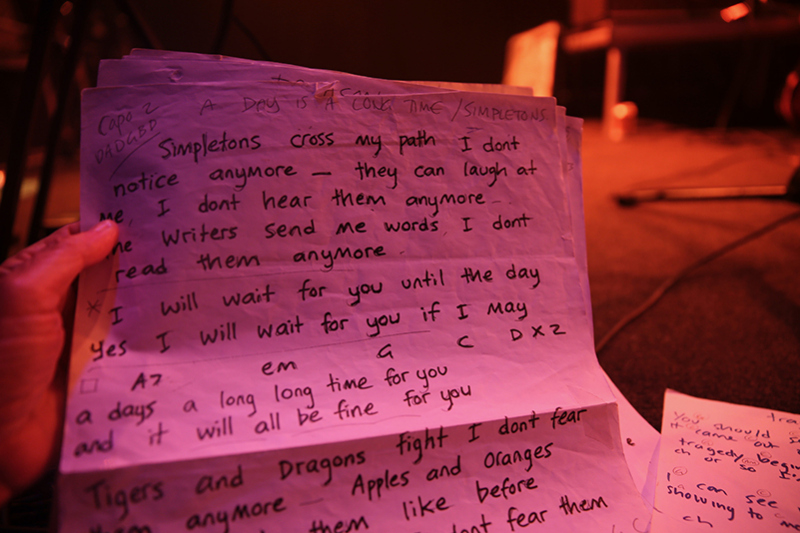 A DAY IS A LONG TIME / SIMPLETONS
Capo 2
DADGBD
Simpletons cross my path I dont
notice anymore — they can laugh at
me, I dont hear them anymore
The writers send me words, I dont
read them anymore
* I will wait for you until the day
yes I will wait for you if I may
A7 em G C D X 2
a days a long long time for you
and it will all be fine for you
Tigers and Dragons fight I don't fear
them anymore — Apples and Oranges
them like before
don't fear them
You should
it came out
tragedy
ch or so I
I can see
showing to me
ch